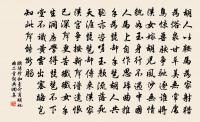 胡人以鞍馬為家射獵
為俗泉甘草美無常處
鳥驚獸駭爭馳逐誰將
漢女嫁胡兒風沙無情
貌如玉身行不遇中國
人馬上自作思歸曲推
手為琵卻手琶胡人共
聽亦咨嗟玉顏流落死
天涯琵琶卻傳來漢家
漢宮爭按新聲譜遺恨
已深聲更苦纖纖女手
生洞房學得琵琶不下
堂不識黃雲出塞路豈
知此聲能斷腸